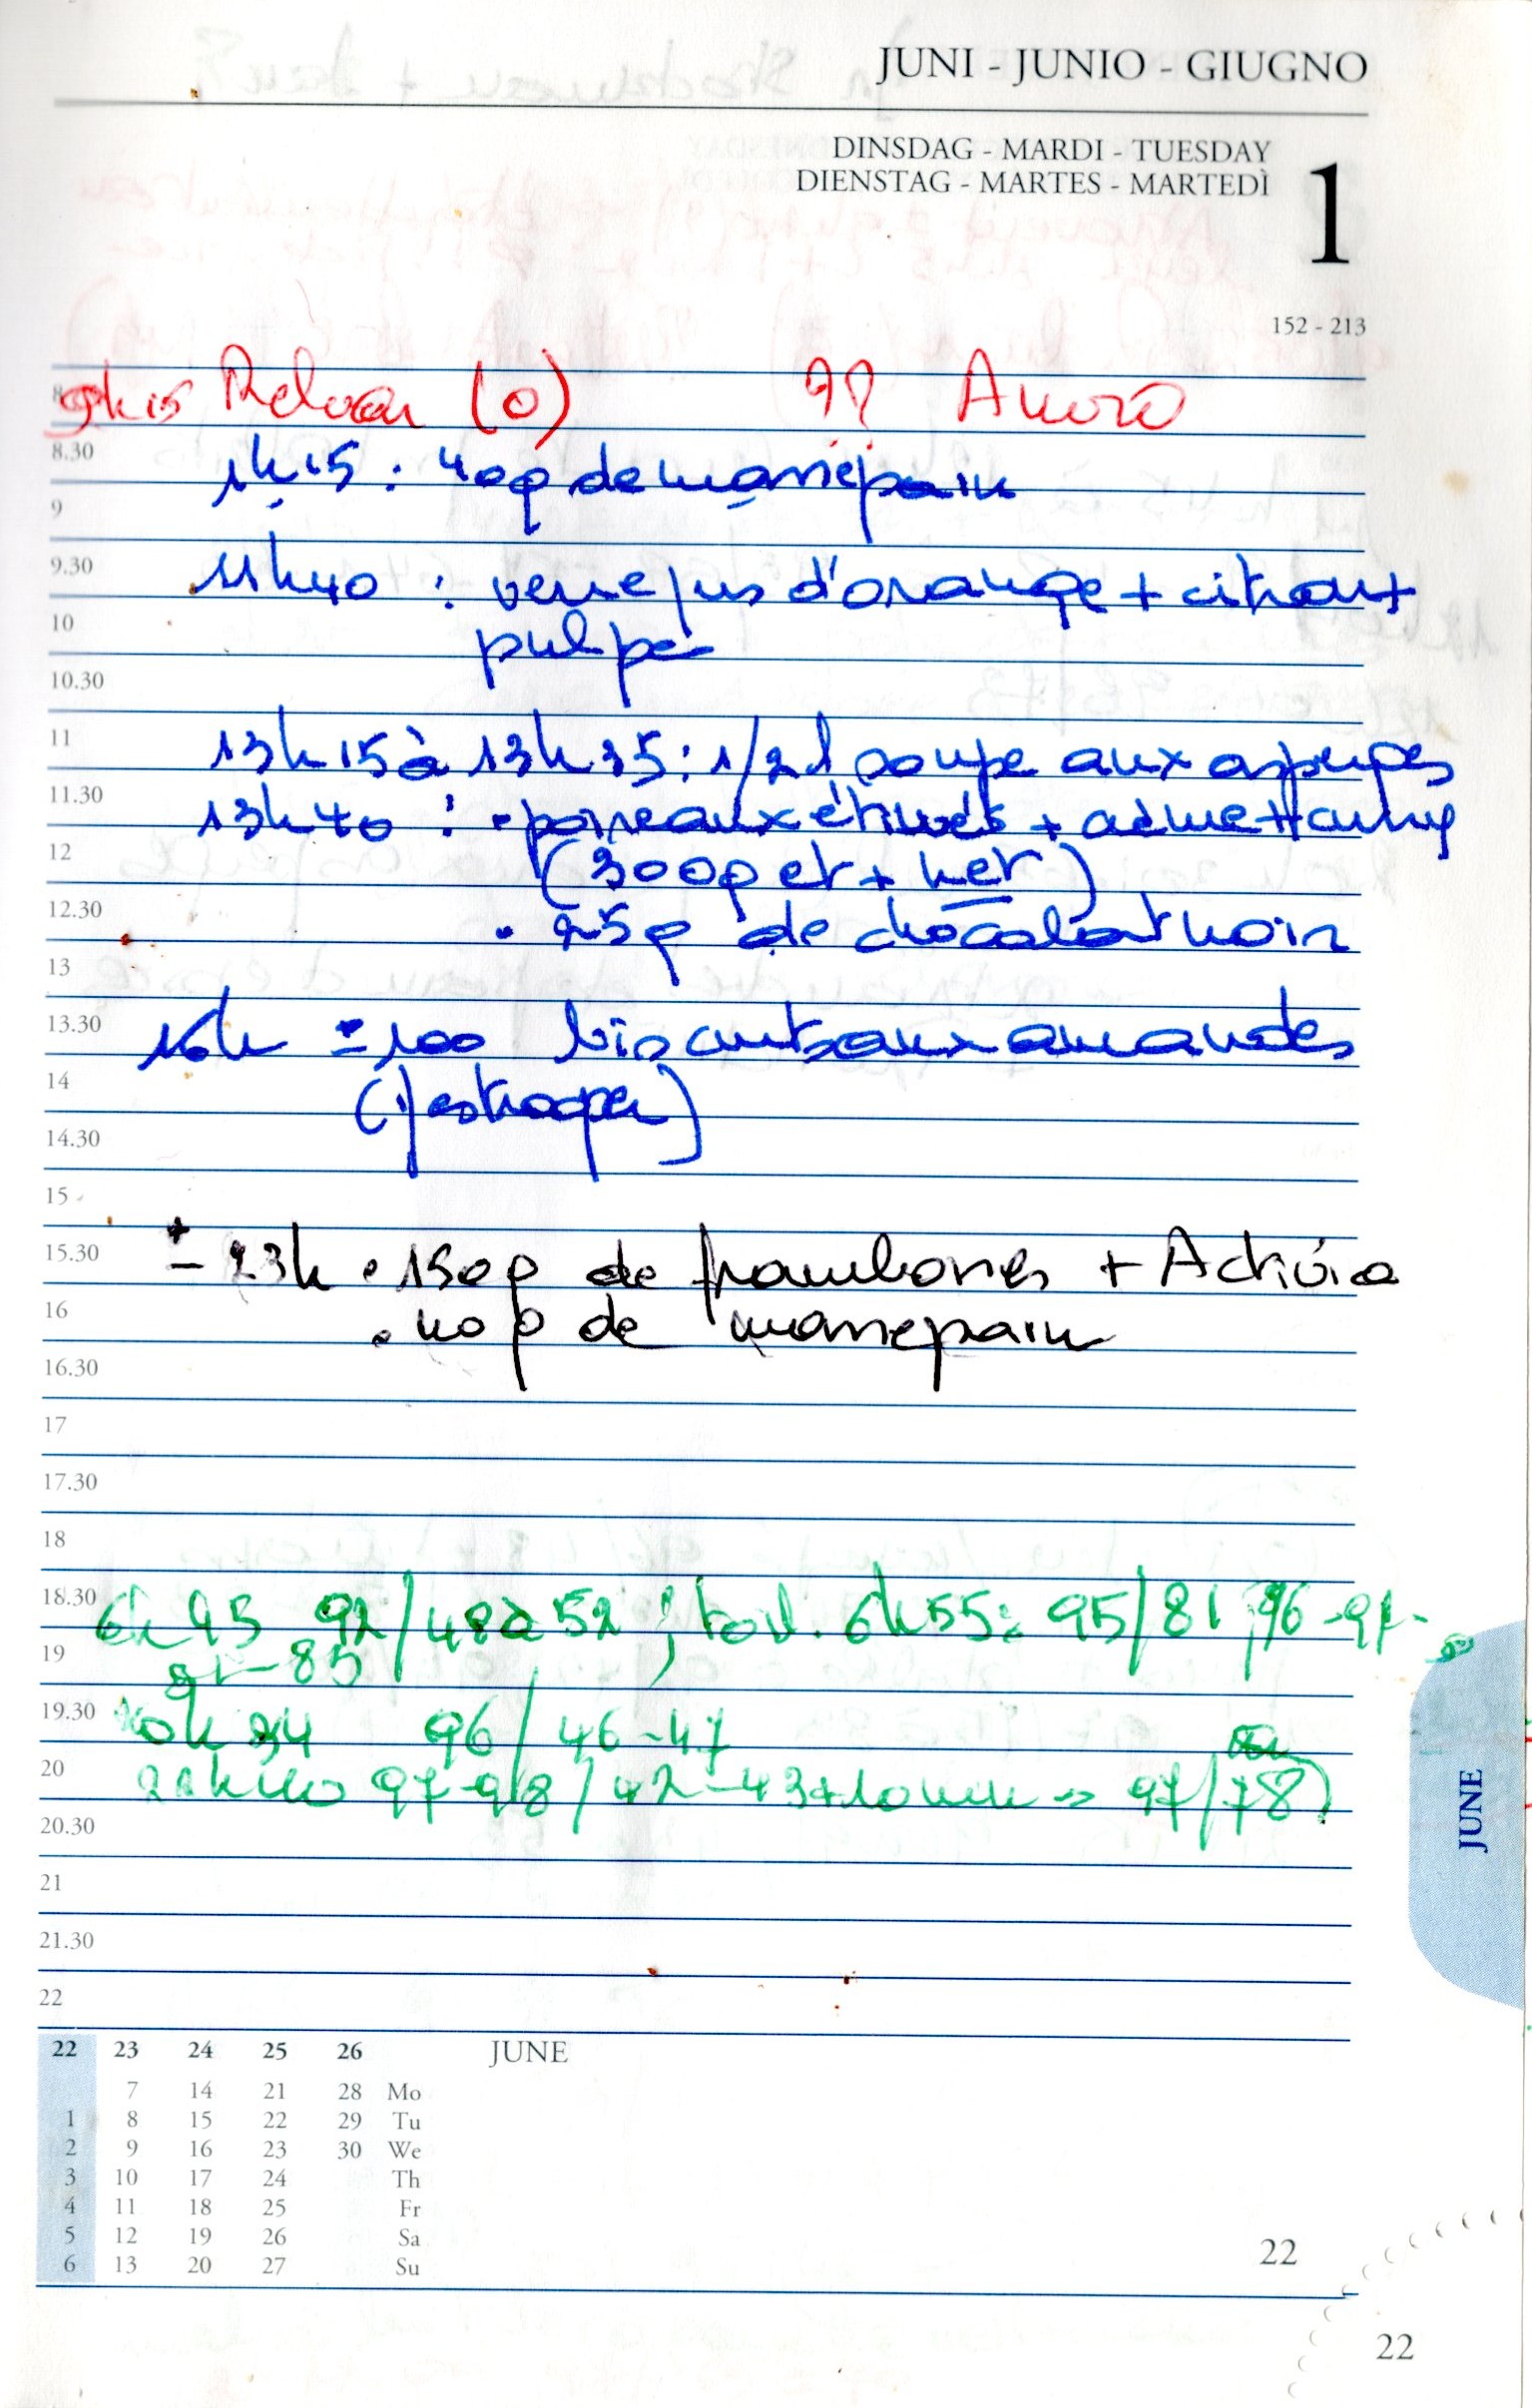 JUNI - JUNIO - GIUGNO
DINSDAG - MARDI - TUESDAY
DIENSTAG - MARTES - MARTEDÌ
1
152 - 213
(0)
8.30
1h15 : 40g de massepain
9
9.30
11h40 : verre jus d'orange + citron +
10
pulpe
10.30
11
13h15 à 13h35 : 1/2 l soupe aux asperges
11.30
13h40 : • poireaux étuvés +
12
(300g et + net)
12.30
• 25g de chocolat noir
13
13.30
16h ± 100 biscuits aux amandes
14
(
14.30
15
15.30
± 23h • 150g de framboises + Activia
16
• 40 g de massepain
16.30
17
17.30
18
18.30
6h45 92/48 à 52 ; 6h55 : 95/81, 96-97-
19
91-85
19.30
96/46-47
20
97-98/42-43 + 10 min => 97/78)
20.30
21
21.30
22
22 23 24 25 26 JUNE
7 14 21 28 Mo
1 8 15 22 29 Tu
2 9 16 23 30 We
3 10 17 24 Th
4 11 18 25 Fr
5 12 19 26 Sa
6 13 20 27 Su
22
22
JUNE